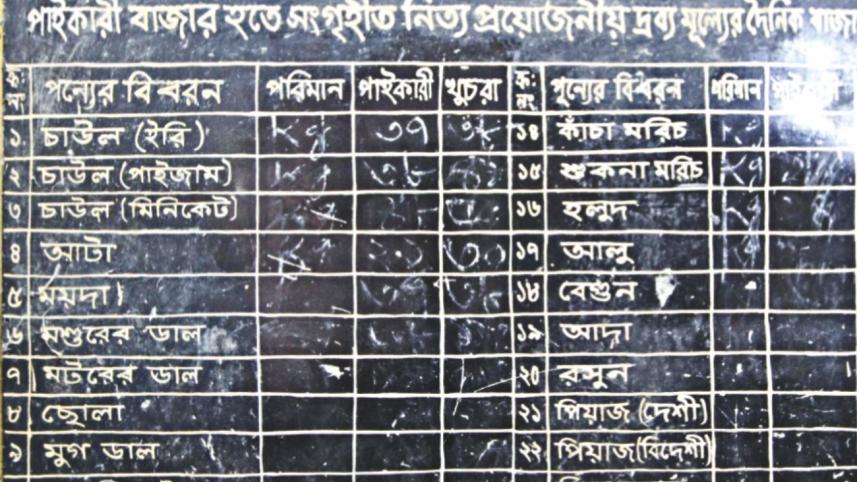 পাইকারী বাজার হতে সংগৃহীত নিত্য প্রয়োজনীয় দ্রব্য মূল্যের দৈনিক বাজা
ক্র: নং পন্যের বিবরন পরিমান পাইকারী খুচরা ক্র: নং পন্যের বিবরন পরিমান পাইকারী
১ চাউল (ইরি) Kg ৩৭ ১৪ কাঁচা মরিচ Kg
২ চাউল (পাইজাম) Kg ১৫ শুকনা মরিচ Kg
৩ চাউল (মিনিকেট) ১৬ হলুদ Kg
৪ আটা Kg ৩০ ১৭ আলু
৫ ময়দা ১৮ বেগুন
৬ মশুরের ডাল ১৯ আদা
৭ মটরের ডাল ২০ রসুন
৮ ছোলা ২১ পিয়াজ (দেশী)
৯ মুগ ডাল ২২ পিয়াজ (বিদেশী)